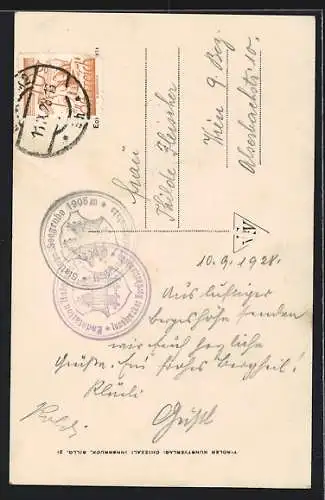 Frau
Thilde Fleischer
Wien 9. Bez.
Alserbachstr. 10.
Station Seegrube 1905 m
10.9.1928.
Aus luftiger
Bergeshöhe senden
wir Euch herzliche
Grüße. Ein frohes Bergheil!
Gustl
Poldi
TIROLER KUNSTVERLAG CHIZZALI INNSBRUCK,